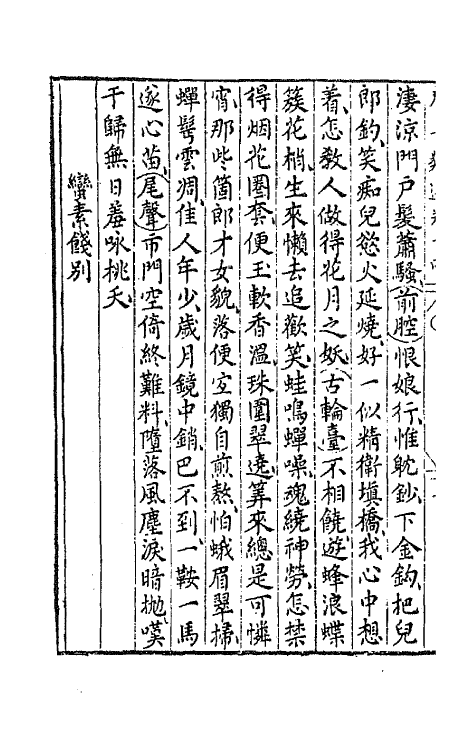 淒涼門戶髮蕭騷（前腔）恨娘行惟躭鈔下金鈎把兒
郎釣笑痴兒慾火延燒好一似精衛塡橋我心中想
着怎教人做得花月之妖（古輪臺）不相饒遊蜂浪蝶
簇花梢生來懶去追歡笑蛙鳴蟬噪魂繞神勞怎禁
得烟花圈套便玉軟香溫珠圍翠遶筭來總是可憐
宵那些箇郎才女貌落便宜獨自煎熬怕蛾眉翠掃
蟬鬂雲凋佳人年少歲月鏡中銷巴不到一鞍一馬
遂心苗（尾聲）市門空倚終難料墮落風塵淚暗抛嘆
于歸無日羞咏桃夭
蠻素餞別